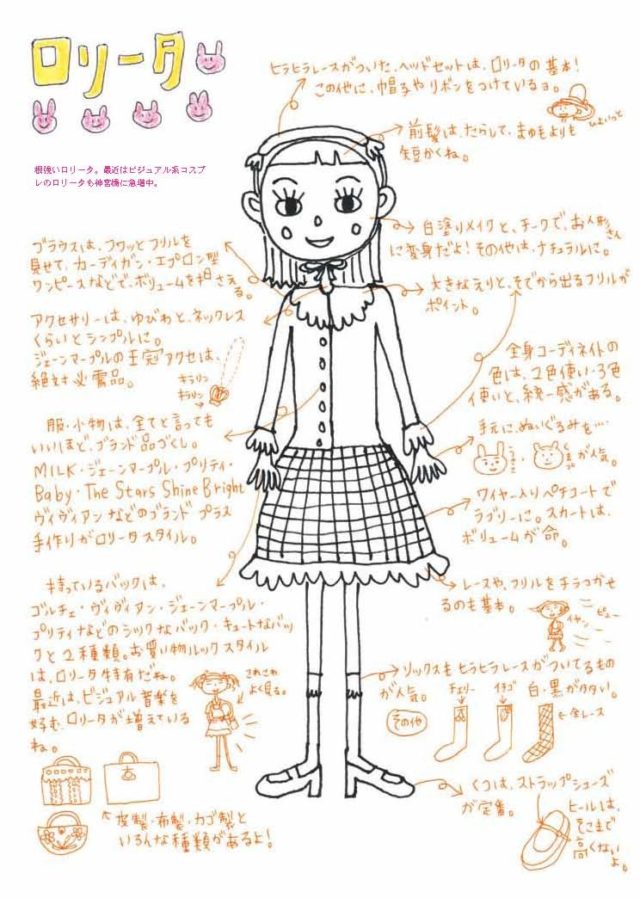 ロリータ
根強いロリータ。最近はビジュアル系コスプ
レのロリータも神宮橋に急増中。
ヒラヒラレースがついた、ヘッドセットは、ロリータの基本!
この他に、帽子やリボンをつけているヨ。
前髪は、たらして、まゆもよりも
短かくね。
白塗りメイクと、チークで、お人形さん
に変身だよ!その他は、ナチュラルに。
大きなえりと、そでから出るフリルが
ポイント。
ブラウスは、フワッとフリルを
見せて、カーディガン・エプロン型
ワンピースなどで、ボリュームを押さえ
る。
アクセサリーは、ゆびわと、ネックレス
くらいとシンプルに。
ジェーンマープルの王冠アクセは、
絶対必需品。
キラリン
キラリン
全身コーディネイトの
色は、2色使い・3色
使いと、統一感がある。
手元に、ぬいぐるみを…
が人気。
服・小物は、全てと言っても
いいほど、ブランド品づくし。
MILK・ジェーンマープル・プリティ・
Baby・The Stars Shine Bright
ヴィヴィアンなどのブランドプラス
手作りがロリータスタイル。
ワイヤー入りペチコートで
ラブリーに。スカートは、
ボリュームが命。
持っているバックは、
ゴルチェ・ヴィヴィアン・ジェーンマープル・
プリティなどのシックなバック・キュートなバッ
クと2種類。お買い物ルックスタイル
は、ロリータ特有だね。
最近は、ビジュアル音楽を
好む、ロリータが増えている
ね。
よく見る。
レースや、フリルをチラつかせ
るのも基本。
イヤン
ピュー
ソックスもヒラヒラレースがついてるもの
が人気。
チェリー
イチゴ
白・黒が多い。
その他
レース
皮製・布製・カゴ製と
いろんな種類があるよ!
くつは、ストラップシューズ
が定番。
ヒールは、
そこまで
高くない
よ。